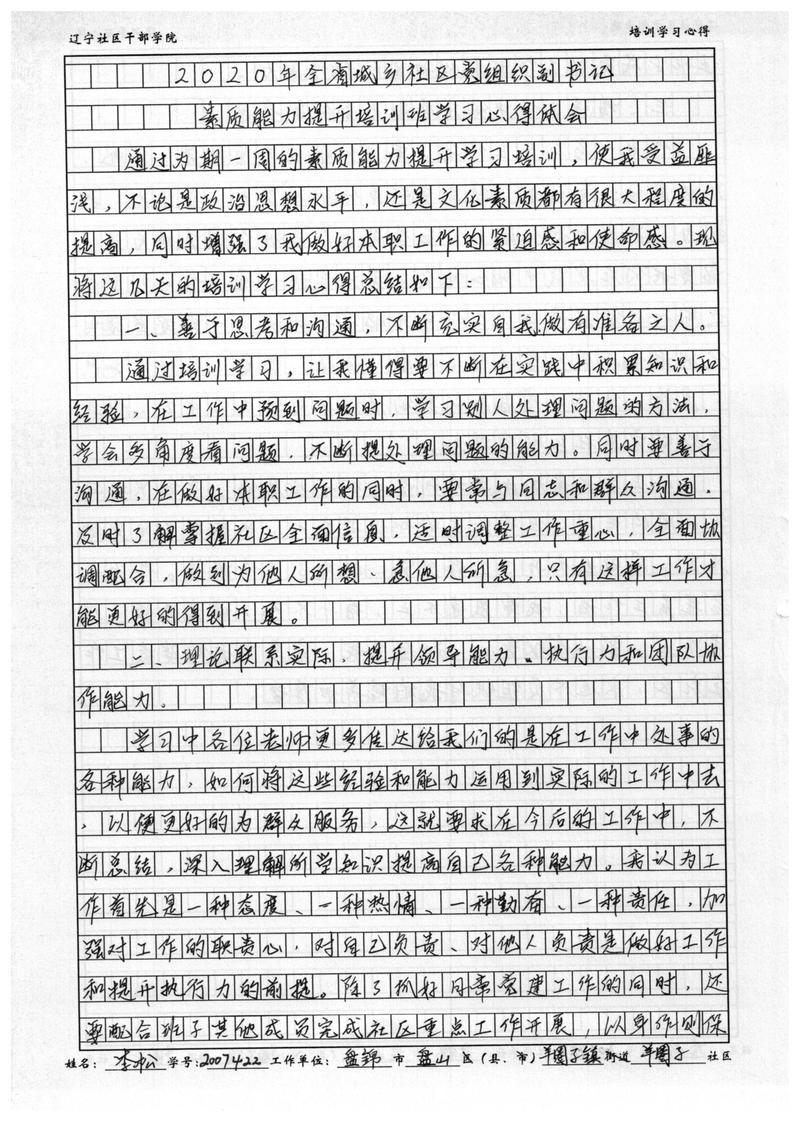 辽宁社区干部学院 培训学习心得
2020年全省城乡社区党组织副书记
素质能力提升培训班学习心得体会
通过为期一周的素质能力提升学习培训，使我受益匪
浅，不论是政治思想水平，还是文化素质都有很大程度的
提高，同时增强了我做好本职工作的紧迫感和使命感。现
将这几天的培训学习心得总结如下：
一、善于思考和沟通，不断充实自我做有准备之人。
通过培训学习，让我懂得要不断在实践中积累知识和
经验，在工作中预到问题时，学习别人处理问题的方法，
学会多角度看问题，不断提处理问题的能力。同时要善于
沟通，在做好本职工作的同时，要常与同志和群众沟通，
及时了解掌握社区全面信息，适时调整工作重心，全面协
调配合，做到为他人所想、急他人所急，只有这样工作才
能更好的得到开展。
二、理论联系实际，提升领导能力、执行力和团队协
作能力。
学习中各位老师更多传达给我们的是在工作中处事的
各种能力，如何将这些经验和能力运用到实际的工作中去
，以便更好的为群众服务，这就要求在今后的工作中，不
断总结，深入理解所学知识提高自己各种能力。我认为工
作首先是一种态度、一种热情、一种勤奋、一种责任，加
强对工作的职责心，对自己负责、对他人负责是做好工作
和提升执行力的前提。除了抓好日常党建工作的同时，还
要配合班子其他成员完成社区重点工作开展，以身作则保
姓名：李 学号：2007422 工作单位：盘锦 市 盘山 区（县、市）羊圈子镇 街道 羊圈子 社区